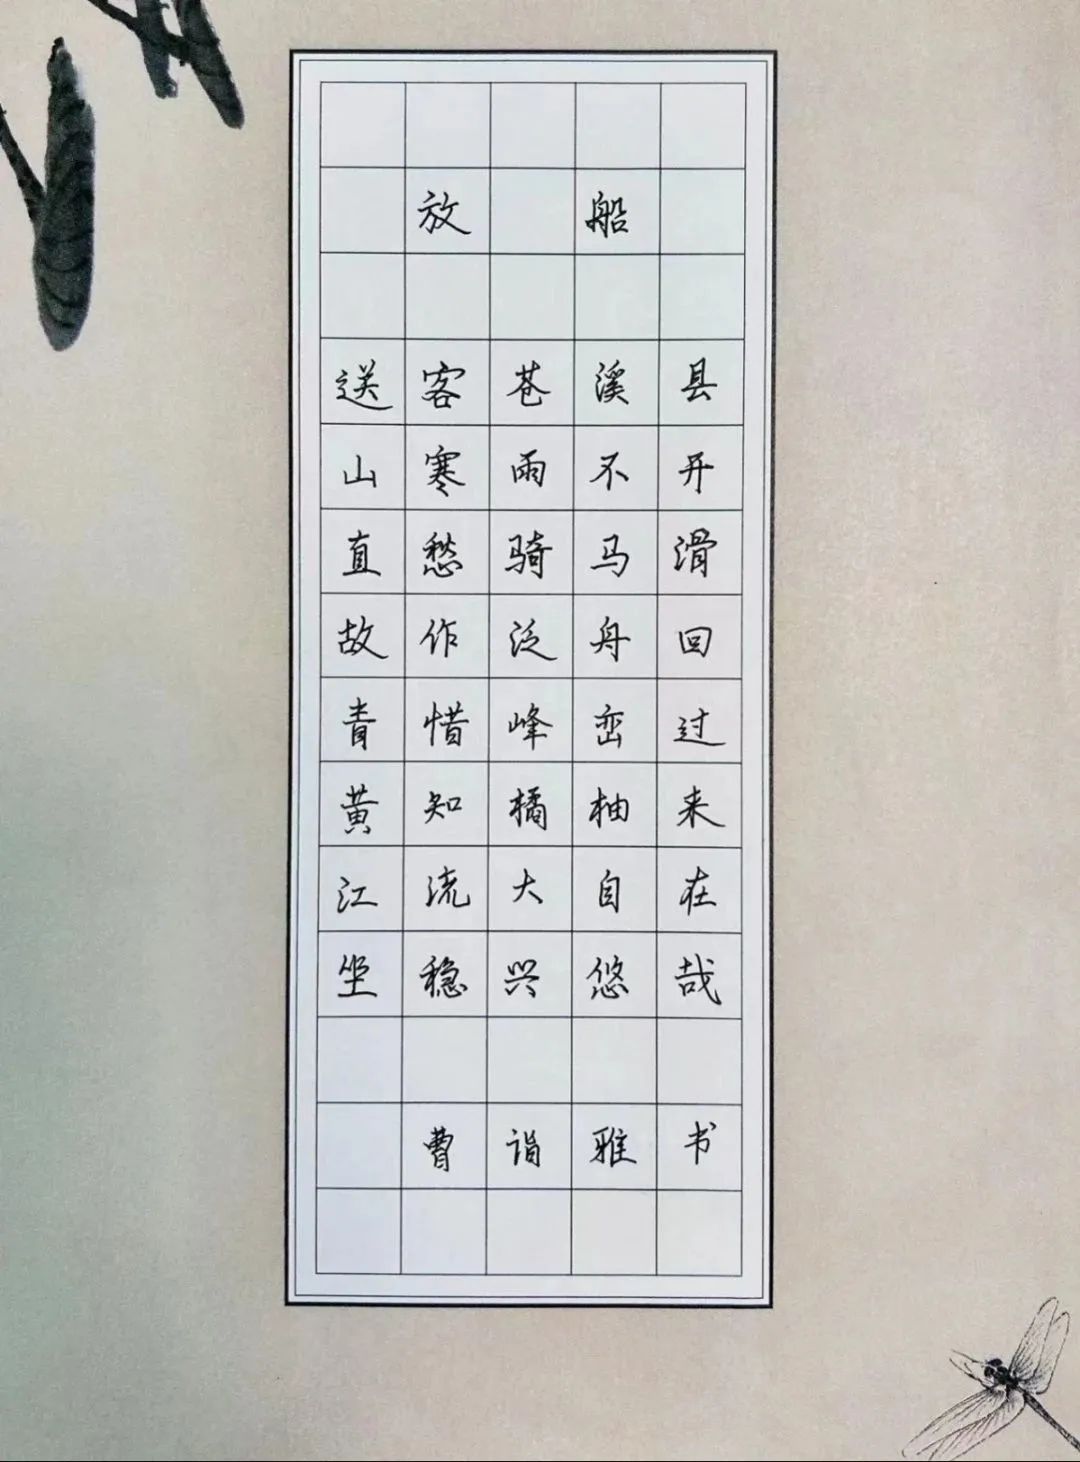 放船
送客苍溪县
山寒雨不开
直愁骑马滑
故作泛舟回
青惜峰峦过
黄知橘柚来
江流大自在
坐稳兴悠哉
曹诣雅书